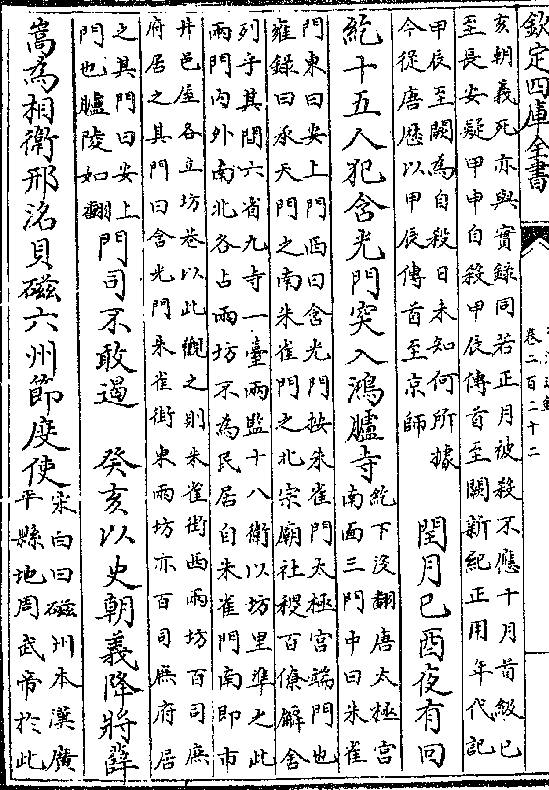 欽定四庫全書
卷二百二十二
亥朝義死亦與實録同若正月被殺不應十月首級已
至長安疑甲申自殺甲辰傳首至闕新紀正用年代記
甲辰至闕為自殺日未知何所據
今從唐厯以甲辰傳首至京師
閏月己酉夜有回
紇十五人犯含光門突入鴻臚寺
紇下沒翻唐太極宮
南面三門中曰朱雀
門東曰安上門西曰含光門按朱雀門太極宮端門也
雍録曰承天門之南朱雀門之北宗廟社稷百僚廨舍
列乎其間六省九寺一臺兩監十八衛以坊里準之此
兩門内外南北各占兩坊不為民居自朱雀門南即市
井邑屋各立坊巷以此觀之則朱雀街西兩坊百司廡
府居之其門曰含光門朱雀街東兩坊亦百司廡府居
之其門曰安上
門也臚陵如翻
門司不敢遏 癸亥以史朝義降將薛
嵩為相衛邢洺貝磁六州節度使
宋白曰磁州本漢廣
平縣地周武帝於此